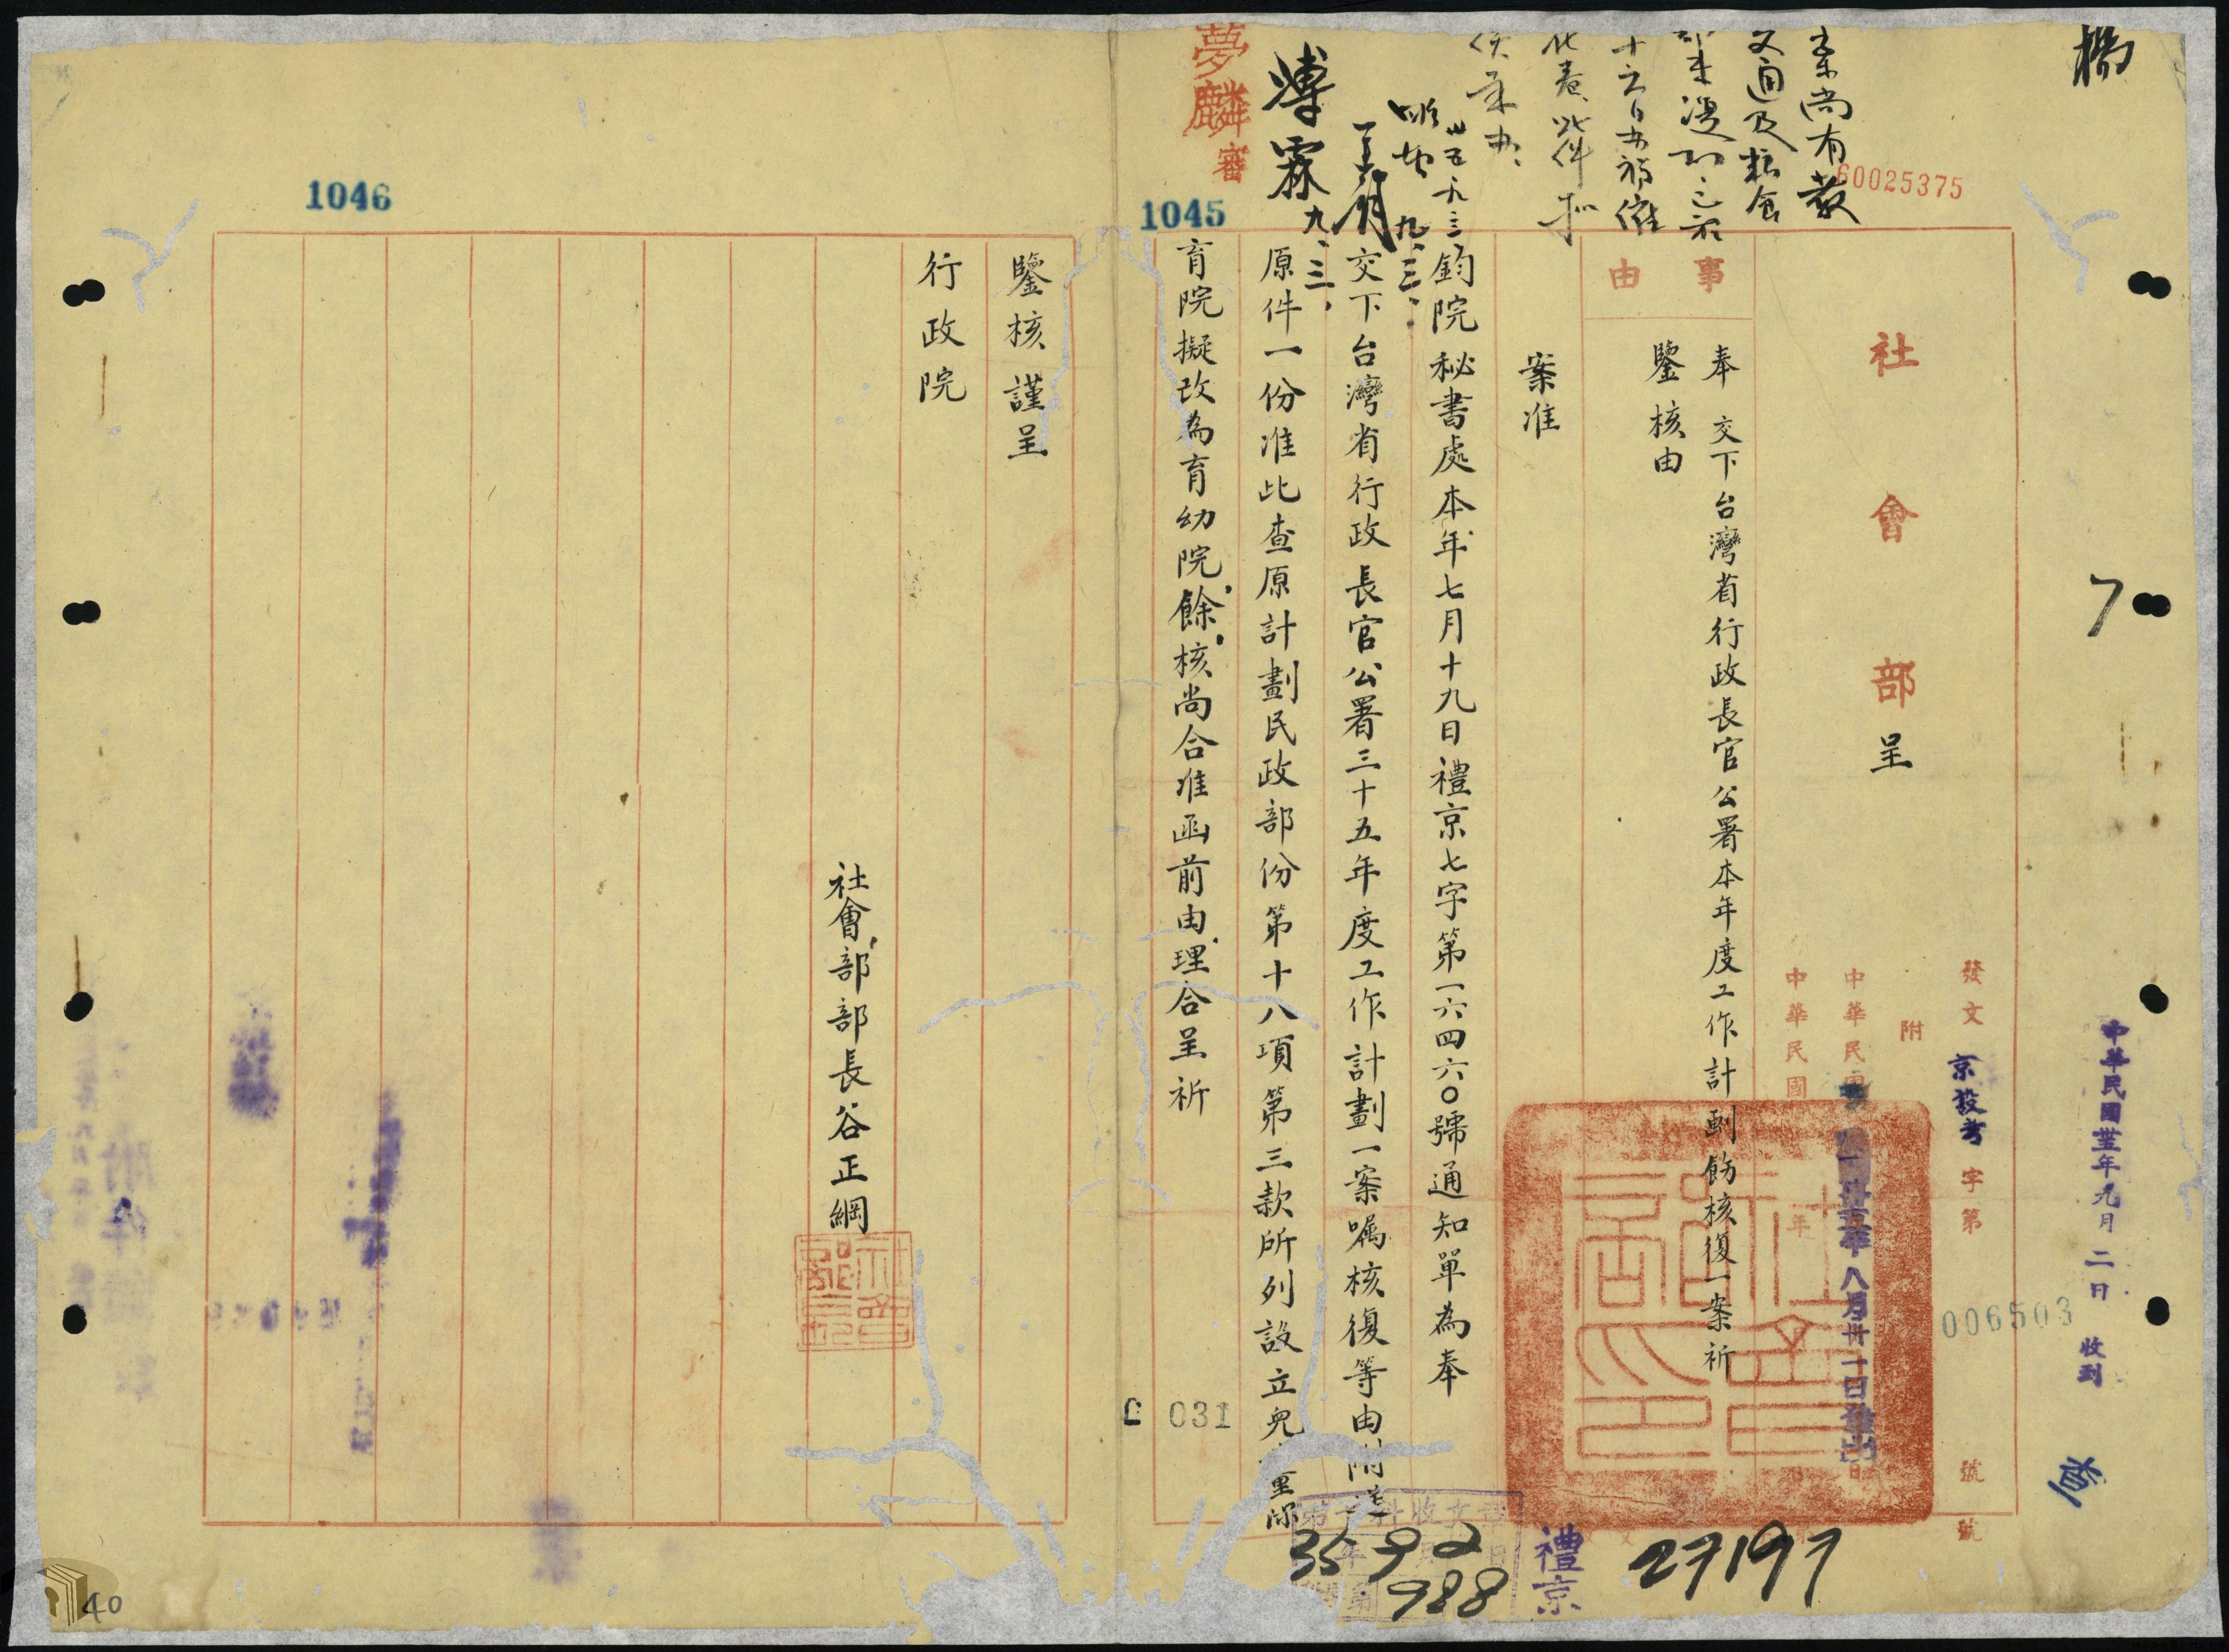 橋
中華民國卅五年九月二日收到
7
60025375
社會部呈
發文京發考字第006503號
附
中華民國卅五年八月卅一日發出
中華民國 年 月 日
事由
奉 交下台灣省行政長官公署本年度工作計劃飭核復一案祈
鑒核由
案准
鈞院秘書處本年七月十九日禮京七字第一六四六〇號通知單為奉
交下台灣省行政長官公署三十五年度工作計劃一案囑核復等由附送
原件一份准此查原計劃民政部份第十八項第三款所列設立兒童保
育院擬改為育幼院餘核尚合准函前由理合呈祈
鑒核謹呈
行政院
社會部部長谷正綱
案尚有教
交通及糧食
十六日
卅五、九、三
九、三、
溥霖
九、三、
夢麟審
1045
1046
031
35 9 2
988
禮京
27197
40